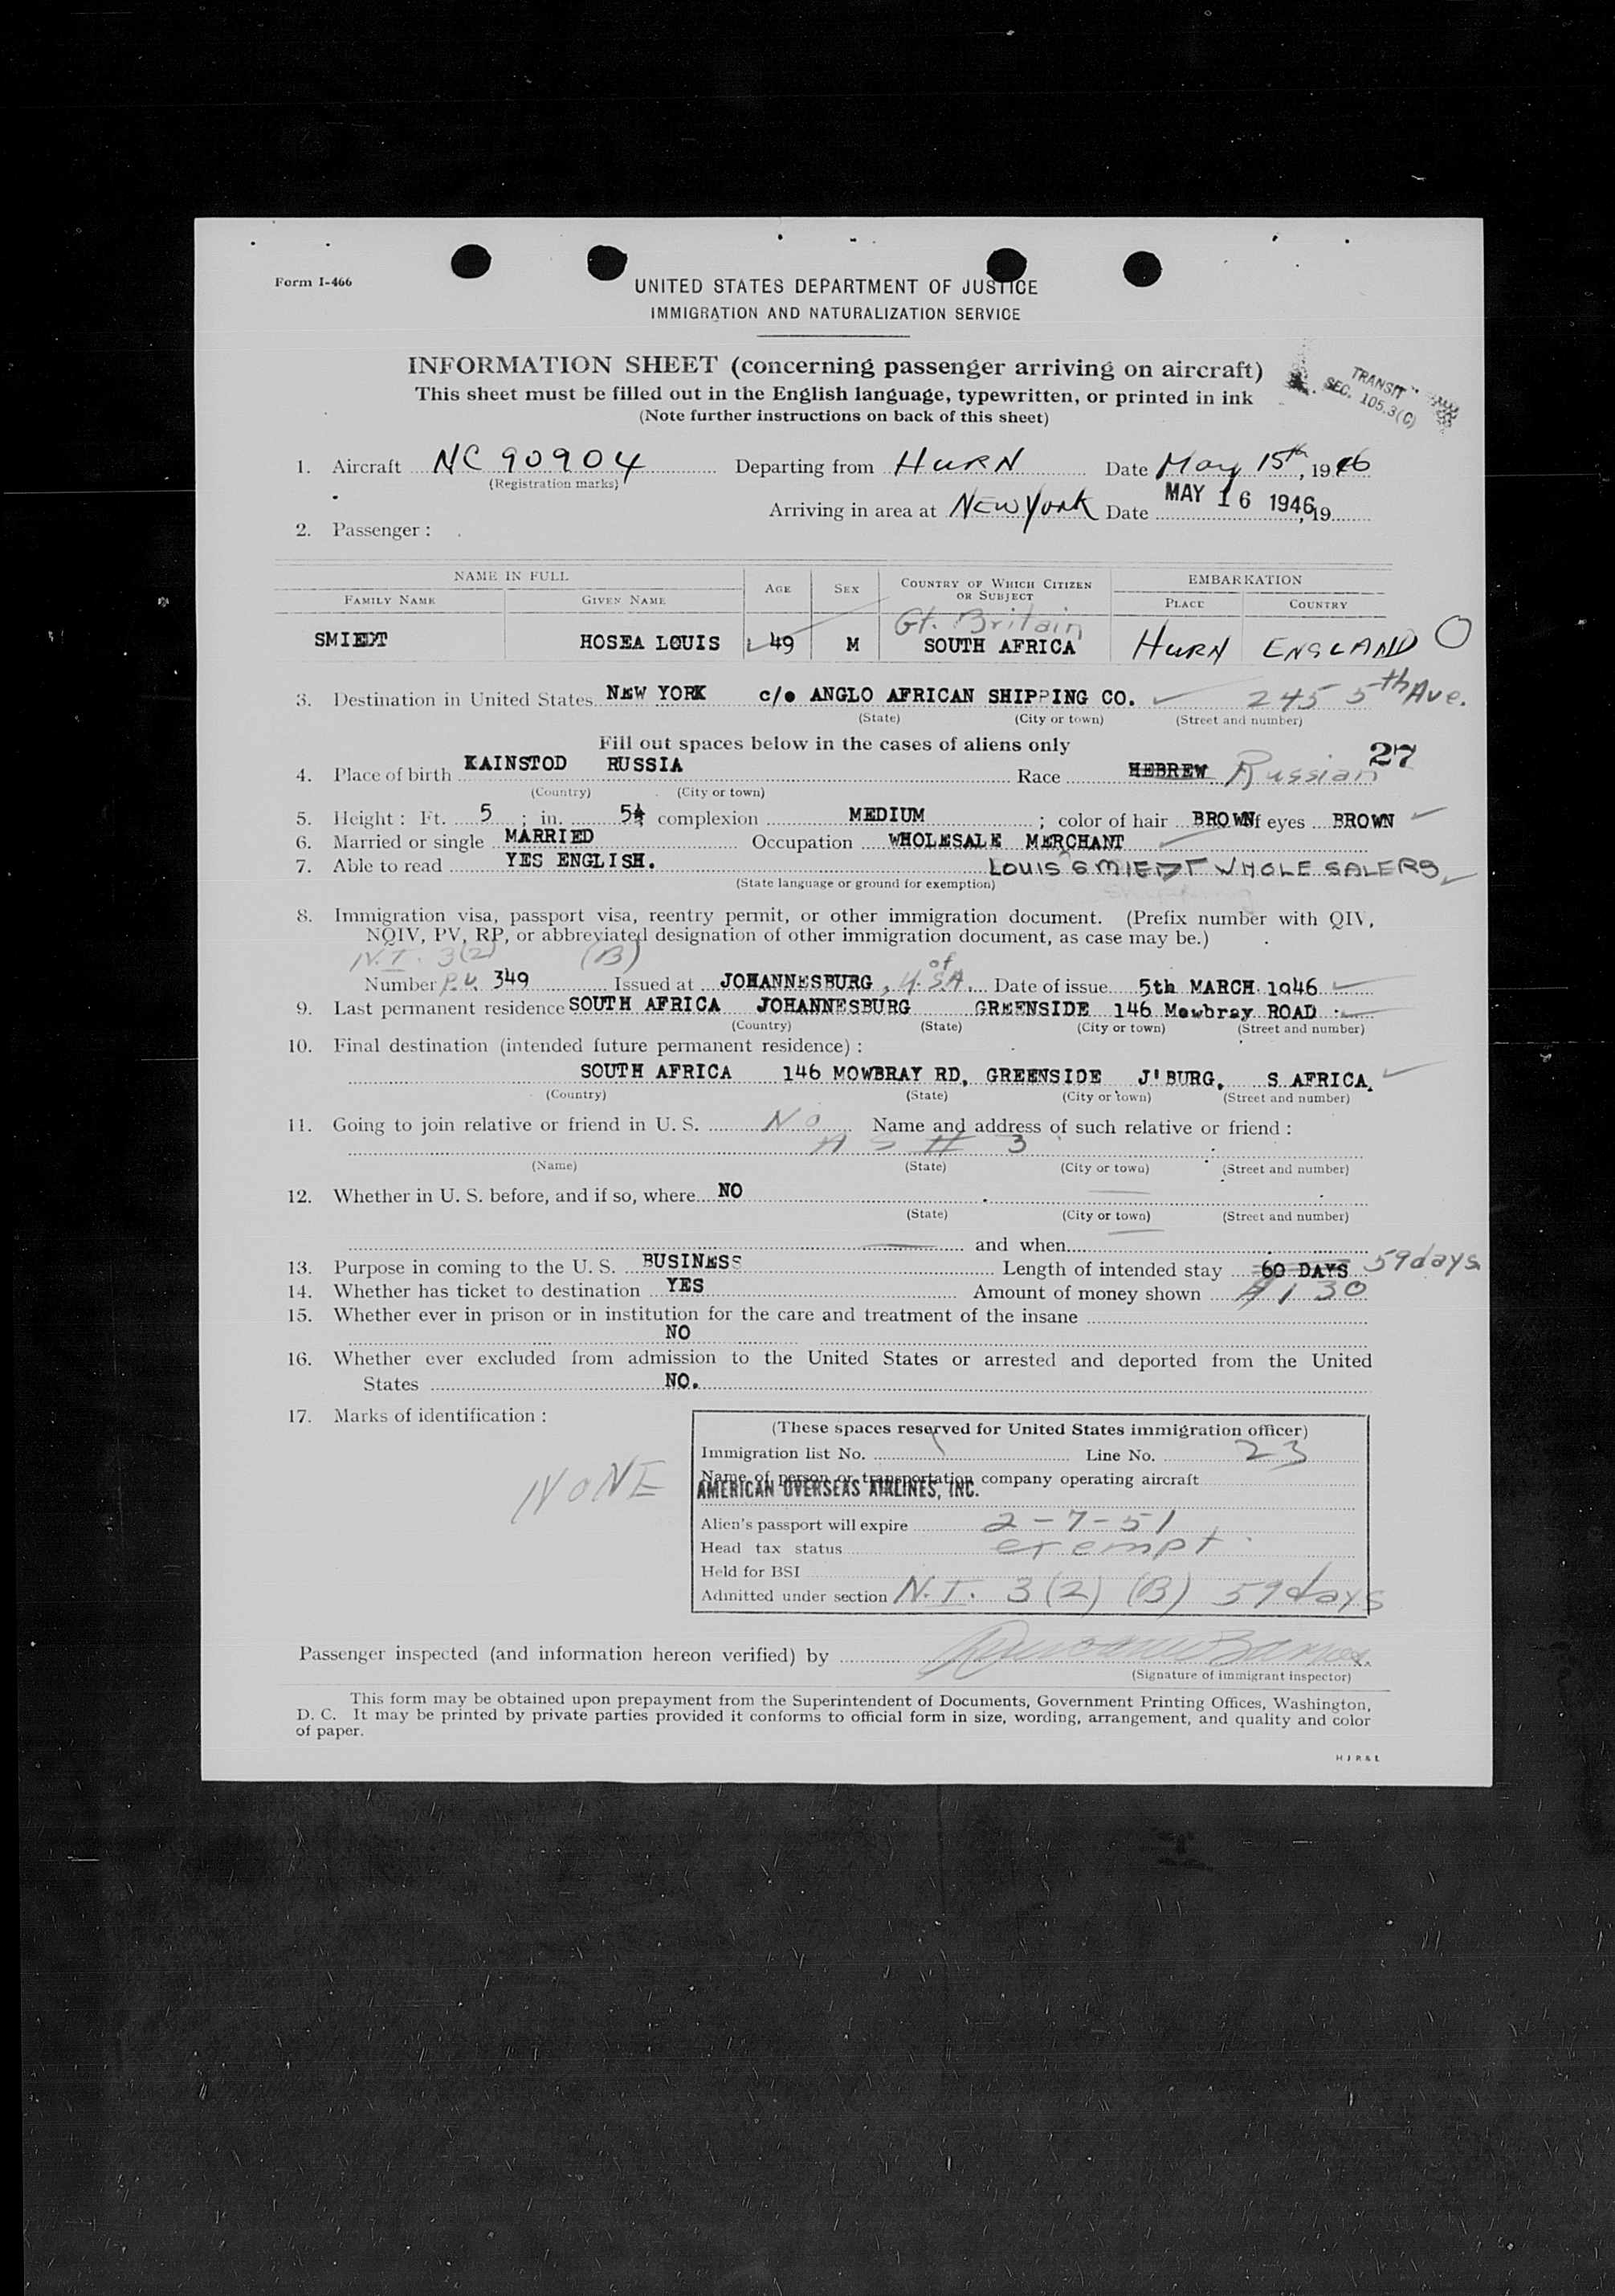 Form I-466
UNITED STATES DEPARTMENT OF JUSTICE
IMMIGRATION AND NATURALIZATION SERVICE
INFORMATION SHEET (concerning passenger arriving on aircraft)
This sheet must be filled out in the English language, typewritten, or printed in ink
(Note further instructions on back of this sheet)
TRANSIT
SEC. 105.3(C)
1. Aircraft NC 90904 Departing from HURN Date May 15th, 1946
(Registration marks)
Arriving in area at NEW YORK Date MAY 16 1946, 19
2. Passenger:
NAME IN FULL AGE SEX COUNTRY OF WHICH CITIZEN OR SUBJECT EMBARKATION
FAMILY NAME GIVEN NAME PLACE COUNTRY
Gt. Britain
SMIEDT HOSEA LOUIS 49 M SOUTH AFRICA HURN ENGLAND
3. Destination in United States NEW YORK c/o ANGLO AFRICAN SHIPPING CO. 245 5th Ave.
(State) (City or town) (Street and number)
Fill out spaces below in the cases of aliens only
27
4. Place of birth KAINSTOD RUSSIA Race HEBREW Russian
(Country) (City or town)
5. Height: Ft. 5; in. 5½ complexion MEDIUM; color of hair BROWN eyes BROWN
6. Married or single MARRIED Occupation WHOLESALE MERCHANT
7. Able to read YES ENGLISH. LOUIS SMIEDT WHOLESALERS
(State language or ground for exemption)
8. Immigration visa, passport visa, reentry permit, or other immigration document. (Prefix number with QIV,
NQIV, PV, RP, or abbreviated designation of other immigration document, as case may be.)
N.I. 3(2) (B)
Number P.V. 349 Issued at JOHANNESBURG, U. of S.A. Date of issue 5th MARCH 1946
9. Last permanent residence SOUTH AFRICA JOHANNESBURG GREENSIDE 146 Mowbray ROAD
(Country) (State) (City or town) (Street and number)
10. Final destination (intended future permanent residence):
SOUTH AFRICA 146 MOWBRAY RD, GREENSIDE J'BURG, S AFRICA.
(Country) (State) (City or town) (Street and number)
11. Going to join relative or friend in U. S. No Name and address of such relative or friend:
AS # 3
(Name) (State) (City or town) (Street and number)
12. Whether in U. S. before, and if so, where NO
(State) (City or town) (Street and number)
and when
13. Purpose in coming to the U. S. BUSINESS Length of intended stay 60 DAYS 59 days
14. Whether has ticket to destination YES Amount of money shown $130
15. Whether ever in prison or in institution for the care and treatment of the insane
NO
16. Whether ever excluded from admission to the United States or arrested and deported from the United
States NO.
17. Marks of identification:
NONE
(These spaces reserved for United States immigration officer)
Immigration list No. Line No. 23
Name of person or transportation company operating aircraft
AMERICAN OVERSEAS AIRLINES, INC.
Alien's passport will expire 2-7-51
Head tax status exempt
Held for BSI
Admitted under section N.I. 3(2) (B) 59 days
Passenger inspected (and information hereon verified) by
(Signature of immigrant inspector)
This form may be obtained upon prepayment from the Superintendent of Documents, Government Printing Offices, Washington,
D. C. It may be printed by private parties provided it conforms to official form in size, wording, arrangement, and quality and color
of paper.
H J R & L